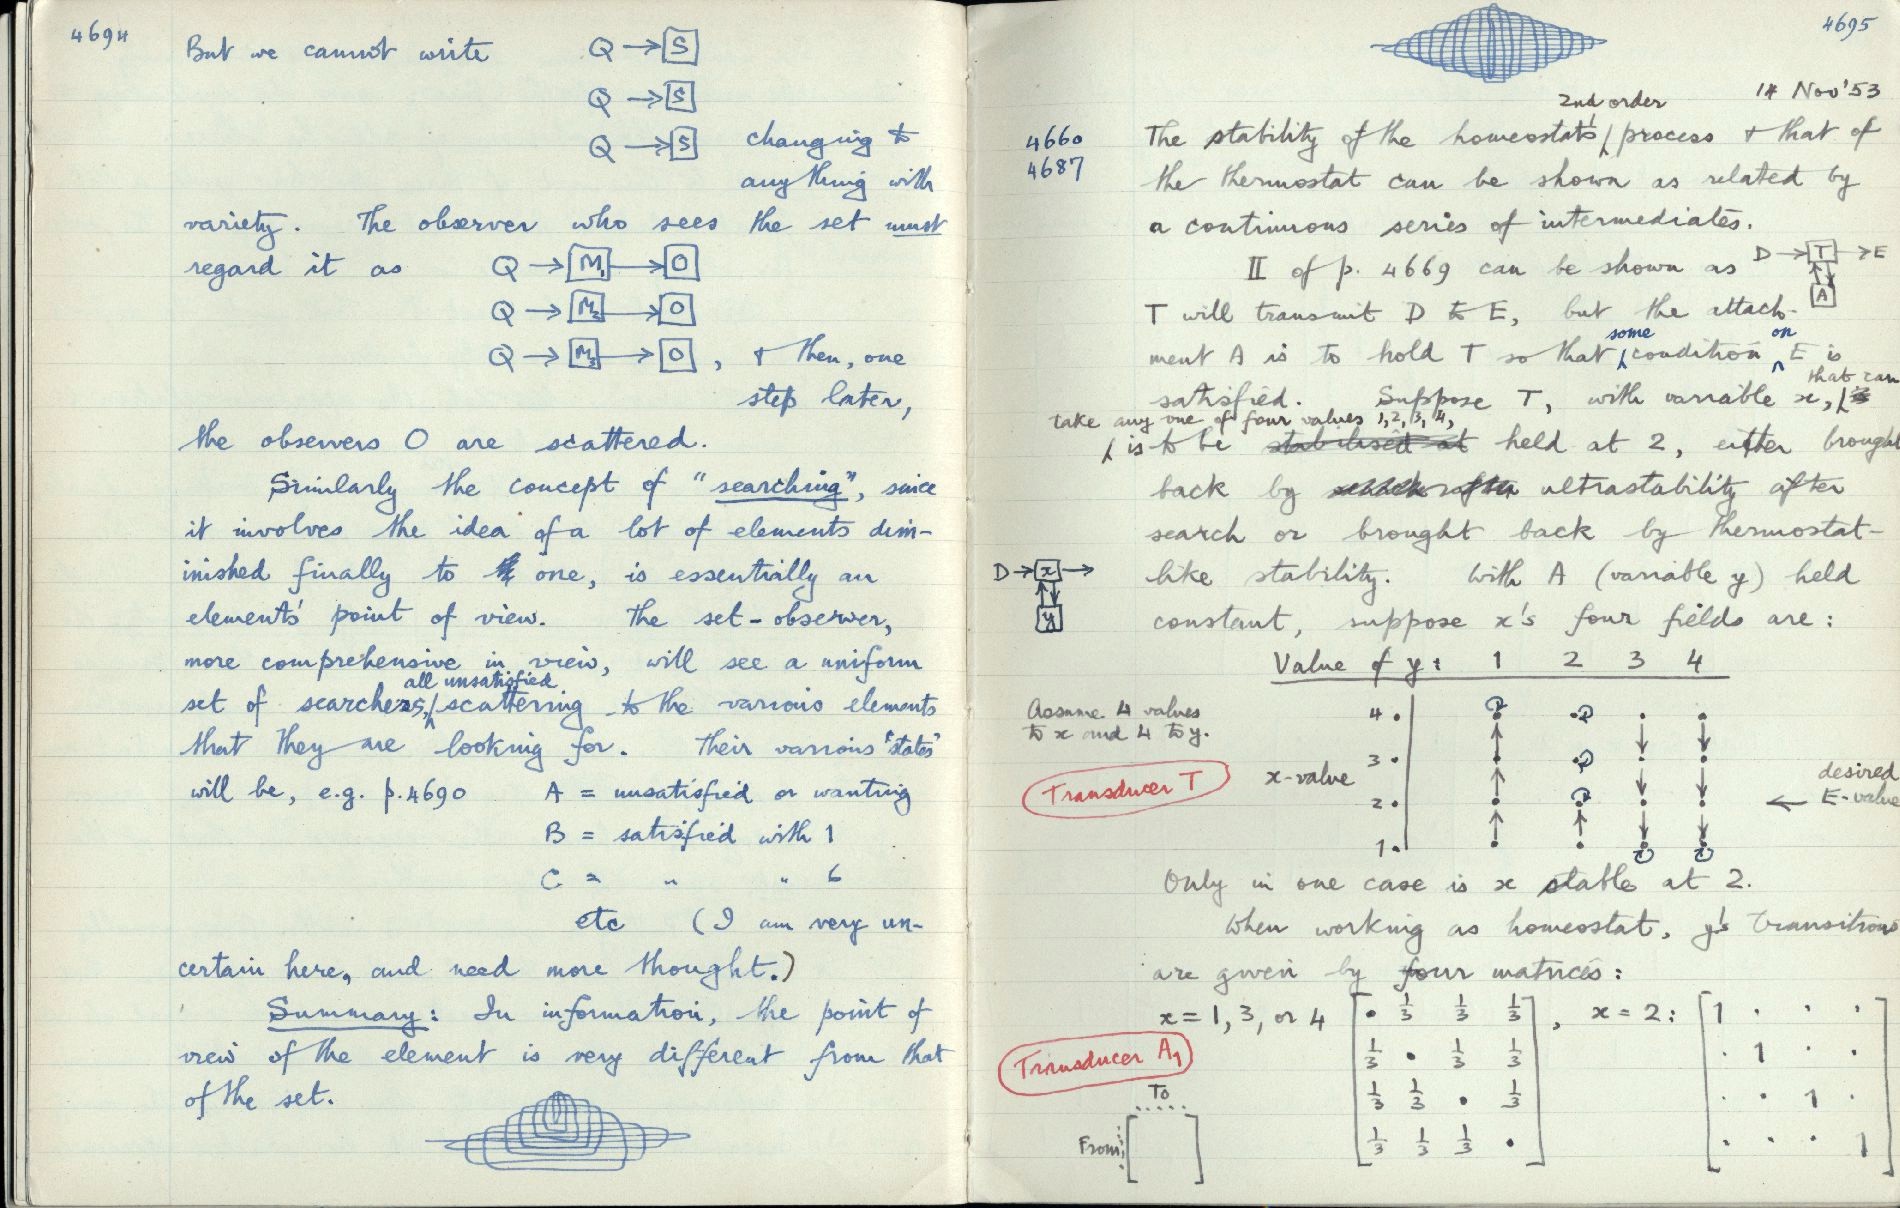 4694
But we cannot write Q → S
Q → S
Q → S changing to
anything with
variety. The observer who sees the set must
regard it as Q → M1 → O
Q → M2 → O
Q → M3 → O , & then, one
step later,
the observers O are scattered.
Similarly the concept of "searching", since
it involves the idea of a lot of elements dim-
inished finally to one, is essentially an
elements' point of view. The set-observer,
more comprehensive in view, will see a uniform
all unsatisfied
set of searchers, scattering to the various elements
that they are looking for. Their various "states"
will be, e.g. p.4690 A = unsatisfied or wanting
B = satisfied with 1
C = " " 6
etc (I am very un-
certain here, and need more thought.)
Summary: In information, the point of
view of the element is very different from that
of the set.
4695
14 Nov '53
2nd order
4660 The stability of the homeostat's process & that of
4687 the thermostat can be shown as related by
a continuous series of intermediates.
II of p. 4669 can be shown as D → T → E
A
T will transmit D to E, but the attach-
some on
ment A is to hold T so that condition E is
that can
satisfied. Suppose T, with variable x,
take any one of four values 1, 2, 3, 4,
is to be stabilised at held at 2, either brought
back by ultrastability after
search or brought back by thermostat-
D → x → like stability. With A (variable y) held
y constant, suppose x's four fields are:
Value of y: 1 2 3 4
Assume 4 values
to x and 4 to y.
4
3
Transducer T x-value
2 ← desired E-value
1
Only in one case is x stable at 2.
When working as homeostat, y's transitions
are given by four matrices:
x = 1, 3, or 4 [ . 1/3 1/3 1/3 ] , x = 2: [ 1 . . . ]
Transducer A1 1/3 . 1/3 1/3 . 1 . .
To 1/3 1/3 . 1/3 . . 1 .
From 1/3 1/3 1/3 . . . . 1